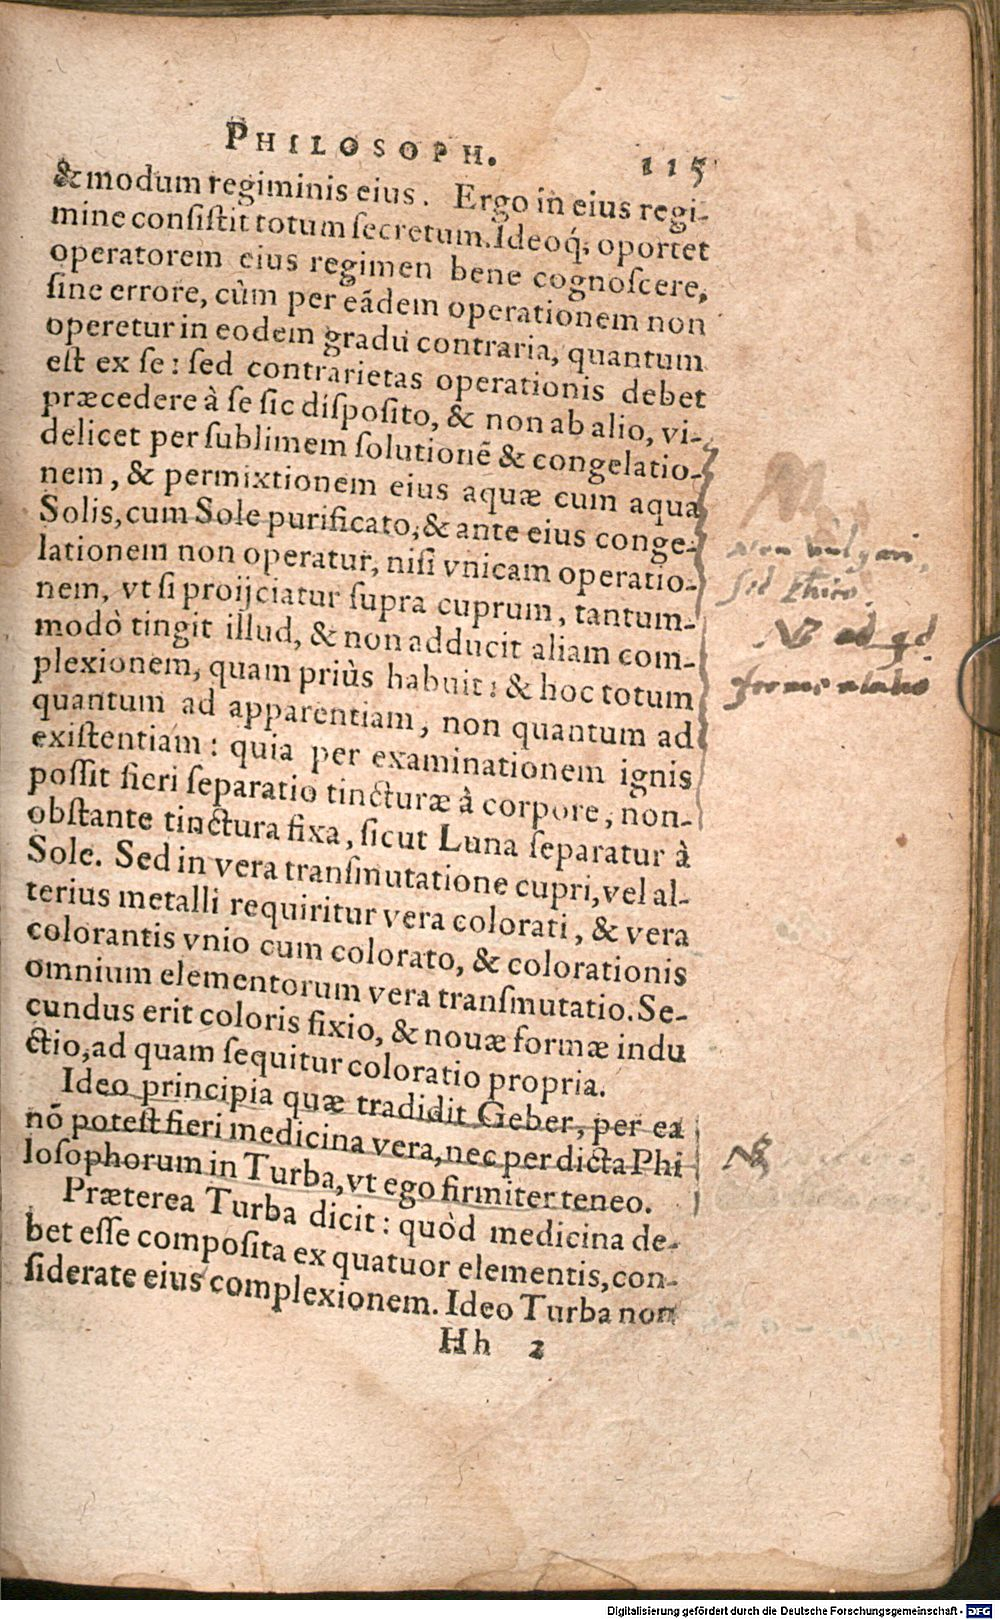 PHILOSOPH. 115
& modum regiminis eius. Ergo in eius regi-
mine consistit totum secretum. Ideoq́; oportet
operatorem eius regimen bene cognoscere,
sine errore, cùm per eãdem operationem non
operetur in eodem gradu contraria, quantum
est ex se: sed contrarietas operationis debet
præcedere à se sic disposito, & non ab alio, vi-
delicet per sublimem solutionẽ & congelatio-
nem, & permixtionem eius aquæ cum aqua
Solis, cum Sole purificato, & ante eius conge-
lationem non operatur, nisi vnicam operatio-
nem, vt si proijciatur supra cuprum, tantum-
modò tingit illud, & non adducit aliam com-
plexionem, quam priùs habuit: & hoc totum
quantum ad apparentiam, non quantum ad
existentiam: quia per examinationem ignis
possit fieri separatio tincturæ à corpore, non-
obstante tinctura fixa, sicut Luna separatur à
Sole. Sed in vera transmutatione cupri, vel al-
terius metalli requiritur vera colorati, & vera
colorantis vnio cum colorato, & colorationis
omnium elementorum vera transmutatio. Se-
cundus erit coloris fixio, & nouæ formæ indu
ctio, ad quam sequitur coloratio propria.
Ideo principia quæ tradidit Geber, per ea
nõ potest fieri medicina vera, nec per dicta Phi
losophorum in Turba, vt ego firmiter teneo.
Præterea Turba dicit: quòd medicina de-
bet esse composita ex quatuor elementis, con-
siderate eius complexionem. Ideo Turba non
Hh 2
non vulgari,
sed Phico.
NB ad qd
fermentatio
NB
Digitalisierung gefördert durch die Deutsche Forschungsgemeinschaft - DFG